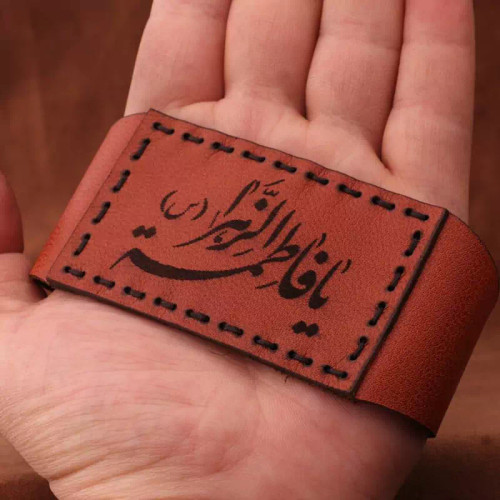 یا فاطمة الزهرا (س)